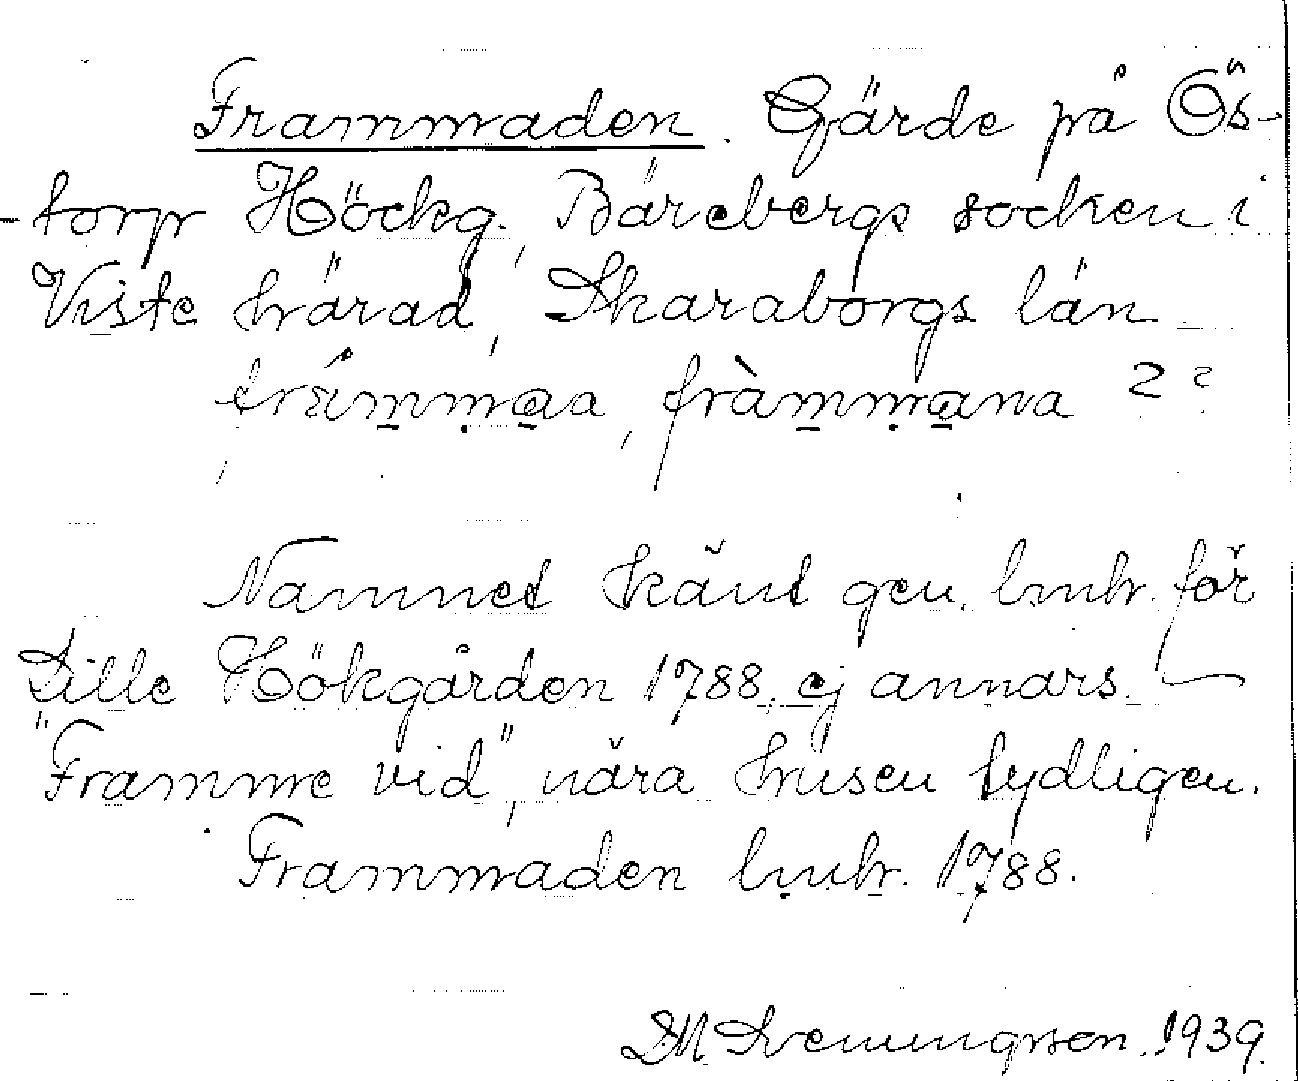 Frammaden. Gärde på Ös-
-torp Höckg., Bärebergs socken i
Viste härad, Skaraborgs län
främmaa, fràmmana 2 ?
Namnet känt gen. lmhr. för
Lille Hökgården 1788, ej annars. —
"Framme vid", nära husen tydligen.
Frammaden lmhr. 1788.
DM Svenningsson. 1939.